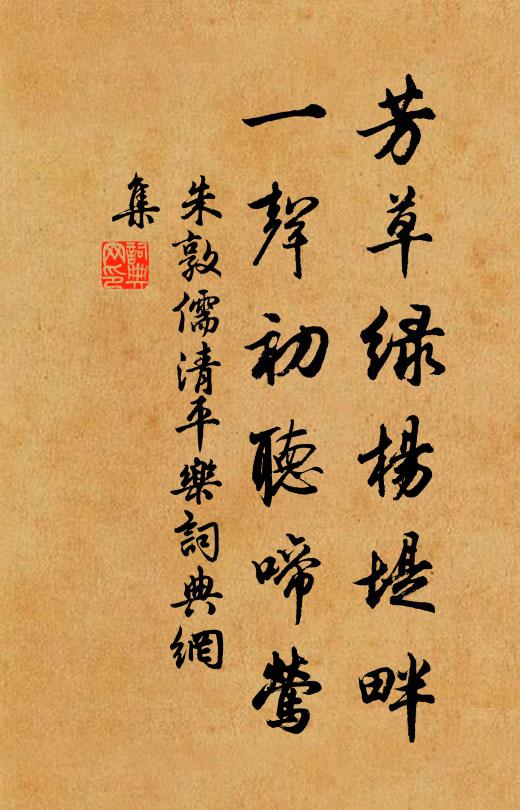 芳草緑楊堤畔
一聲初聽啼鶯
朱敦儒清平樂詞典網
集
詞典
网印